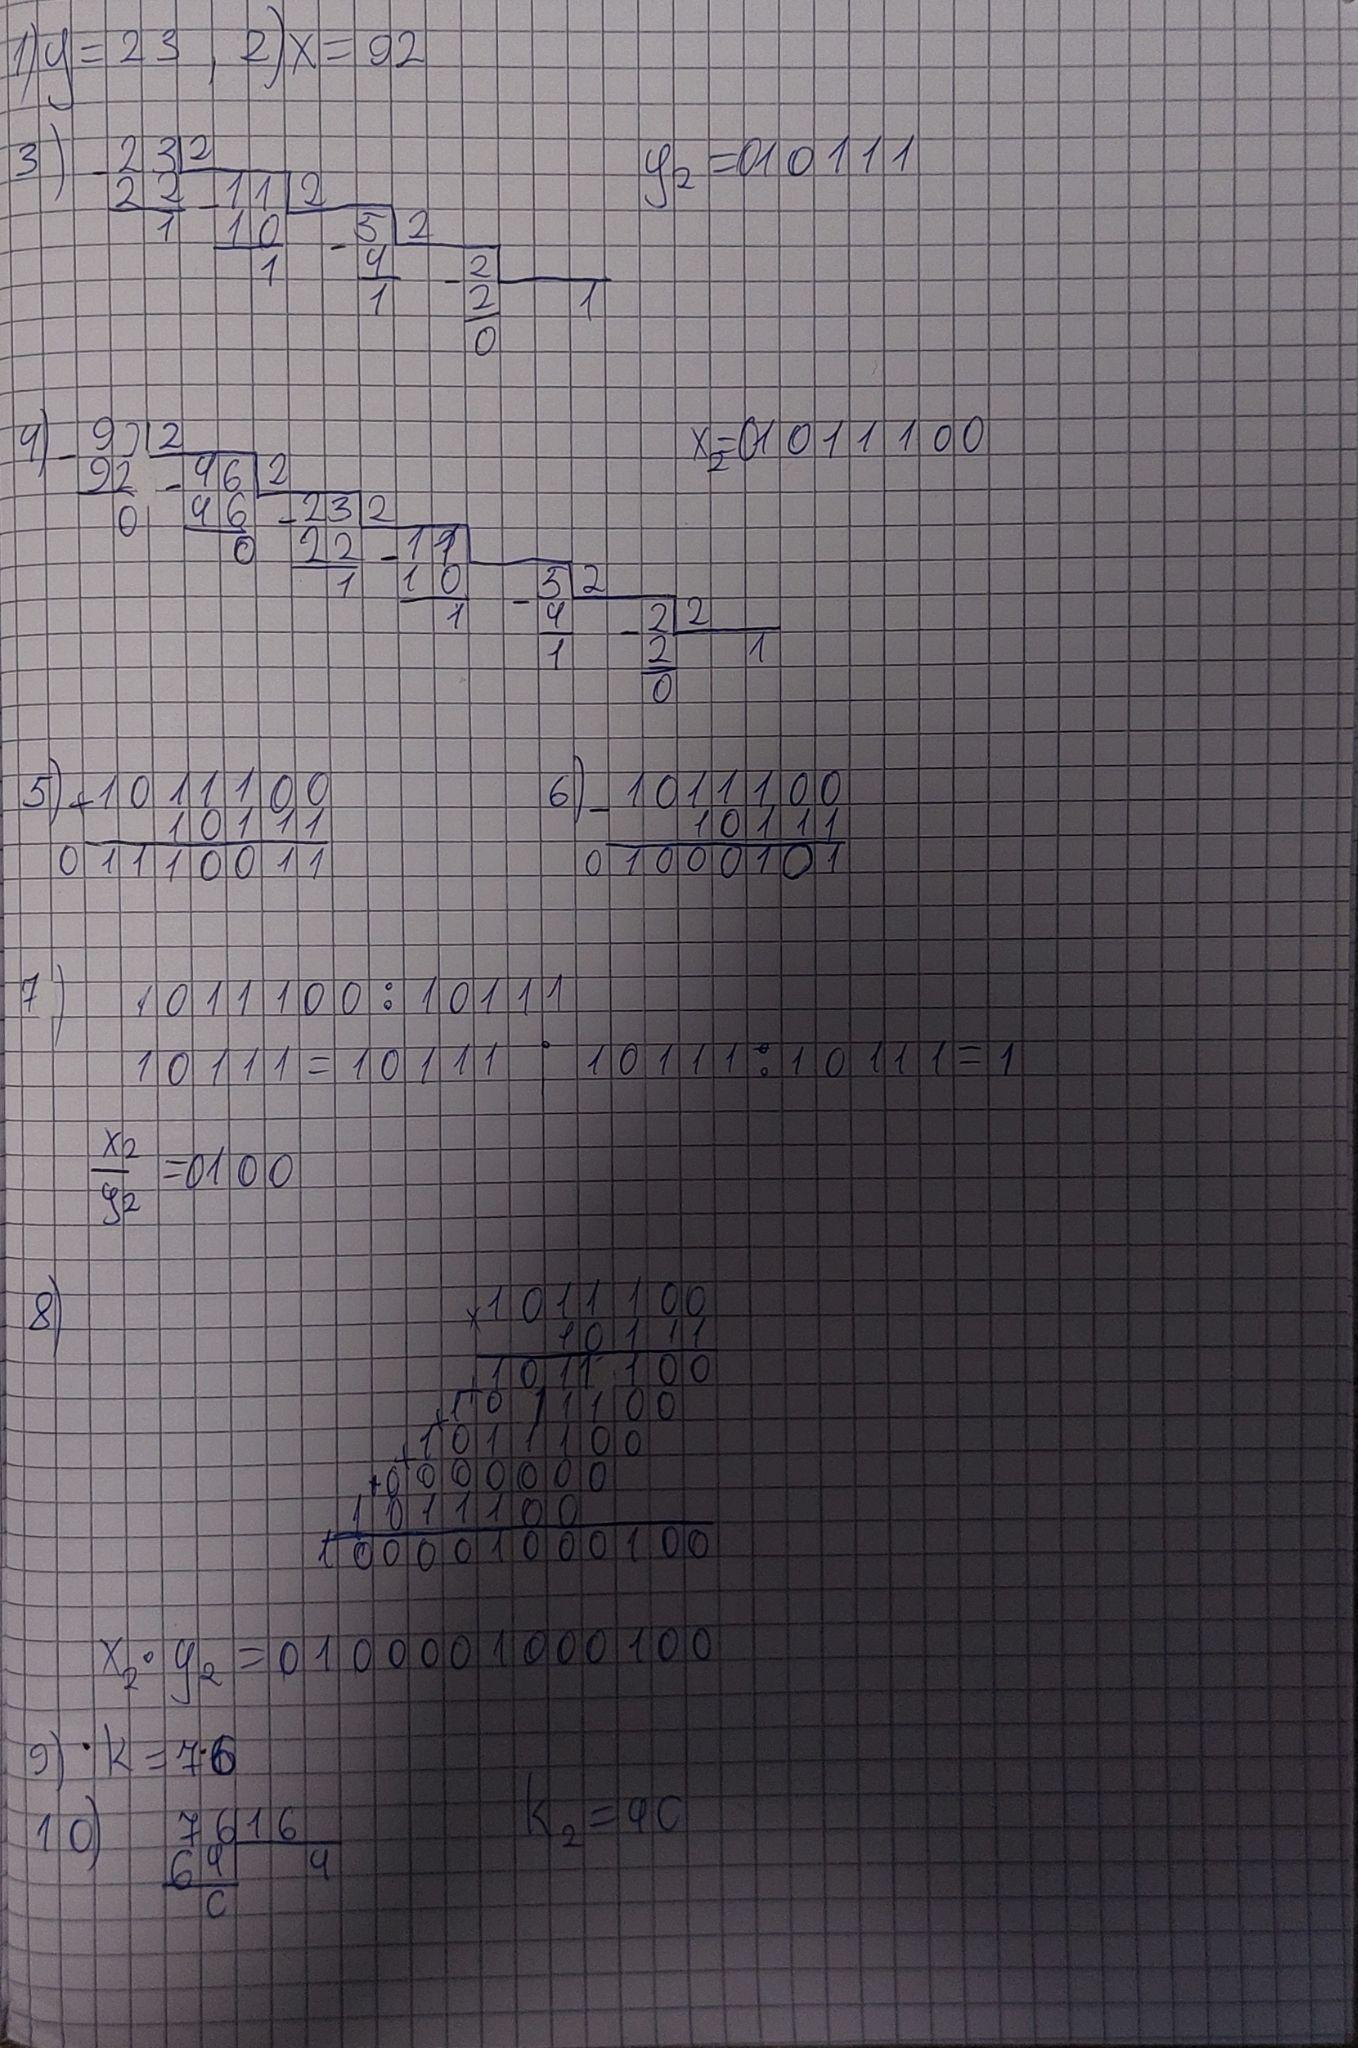 1) y = 23 , 2) x = 92
3) - 23 2 y₂ = 010111
22 - 11 2
1 10 - 5 2
1 4 - 2
1 2 1
0
4) - 92 2 x₂ = 01011100
92 - 46 2
0 46 - 23 2
0 22 - 11
1 10 - 5 2
1 4 - 2 2
1 2 1
0
5) + 1011100 6) - 1011100
10111 10111
01110011 01000101
7) 1011100 : 10111
10111 = 10111 ; 10111 : 10111 = 1
x₂/y₂ = 0100
8) x 1011100
10111
+ 1011100
+ 1011100
+ 1011100
+ 0000000
1011100
100001000100
x₂ · y₂ = 0100001000100
9) · k = 76
10) 76 16 k₂ = 4C
64 4
C